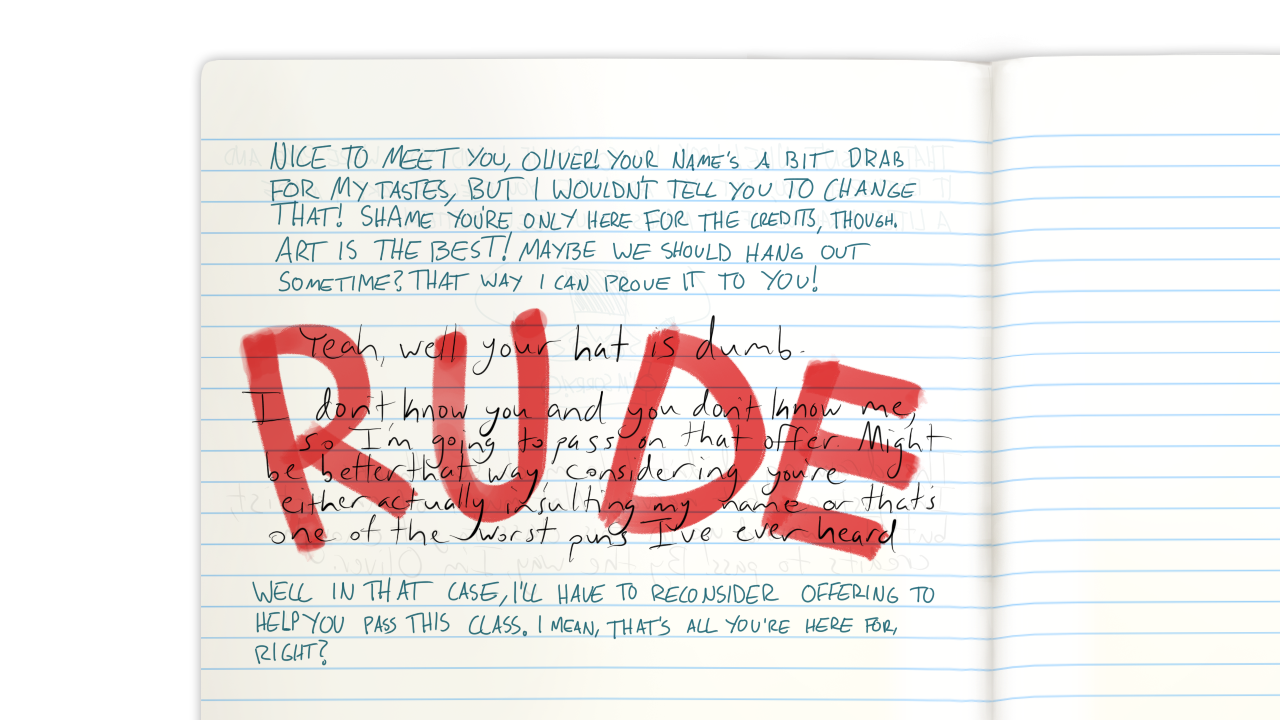 NICE TO MEET YOU, OLIVER! YOUR NAME'S A BIT DRAB
FOR MY TASTES, BUT I WOULDN'T TELL YOU TO CHANGE
THAT! SHAME YOU'RE ONLY HERE FOR THE CREDITS, THOUGH.
ART IS THE BEST! MAYBE WE SHOULD HANG OUT
SOMETIME? THAT WAY I CAN PROVE IT TO YOU!
Yeah, well your hat is dumb.
RUDE
I don't know you and you don't know me,
so I'm going to pass on that offer. Might
be better that way, considering you're
either actually insulting my name or that's
one of the worst puns I've ever heard
WELL IN THAT CASE, I'LL HAVE TO RECONSIDER OFFERING TO
HELP YOU PASS THIS CLASS. I MEAN, THAT'S ALL YOU'RE HERE FOR,
RIGHT?